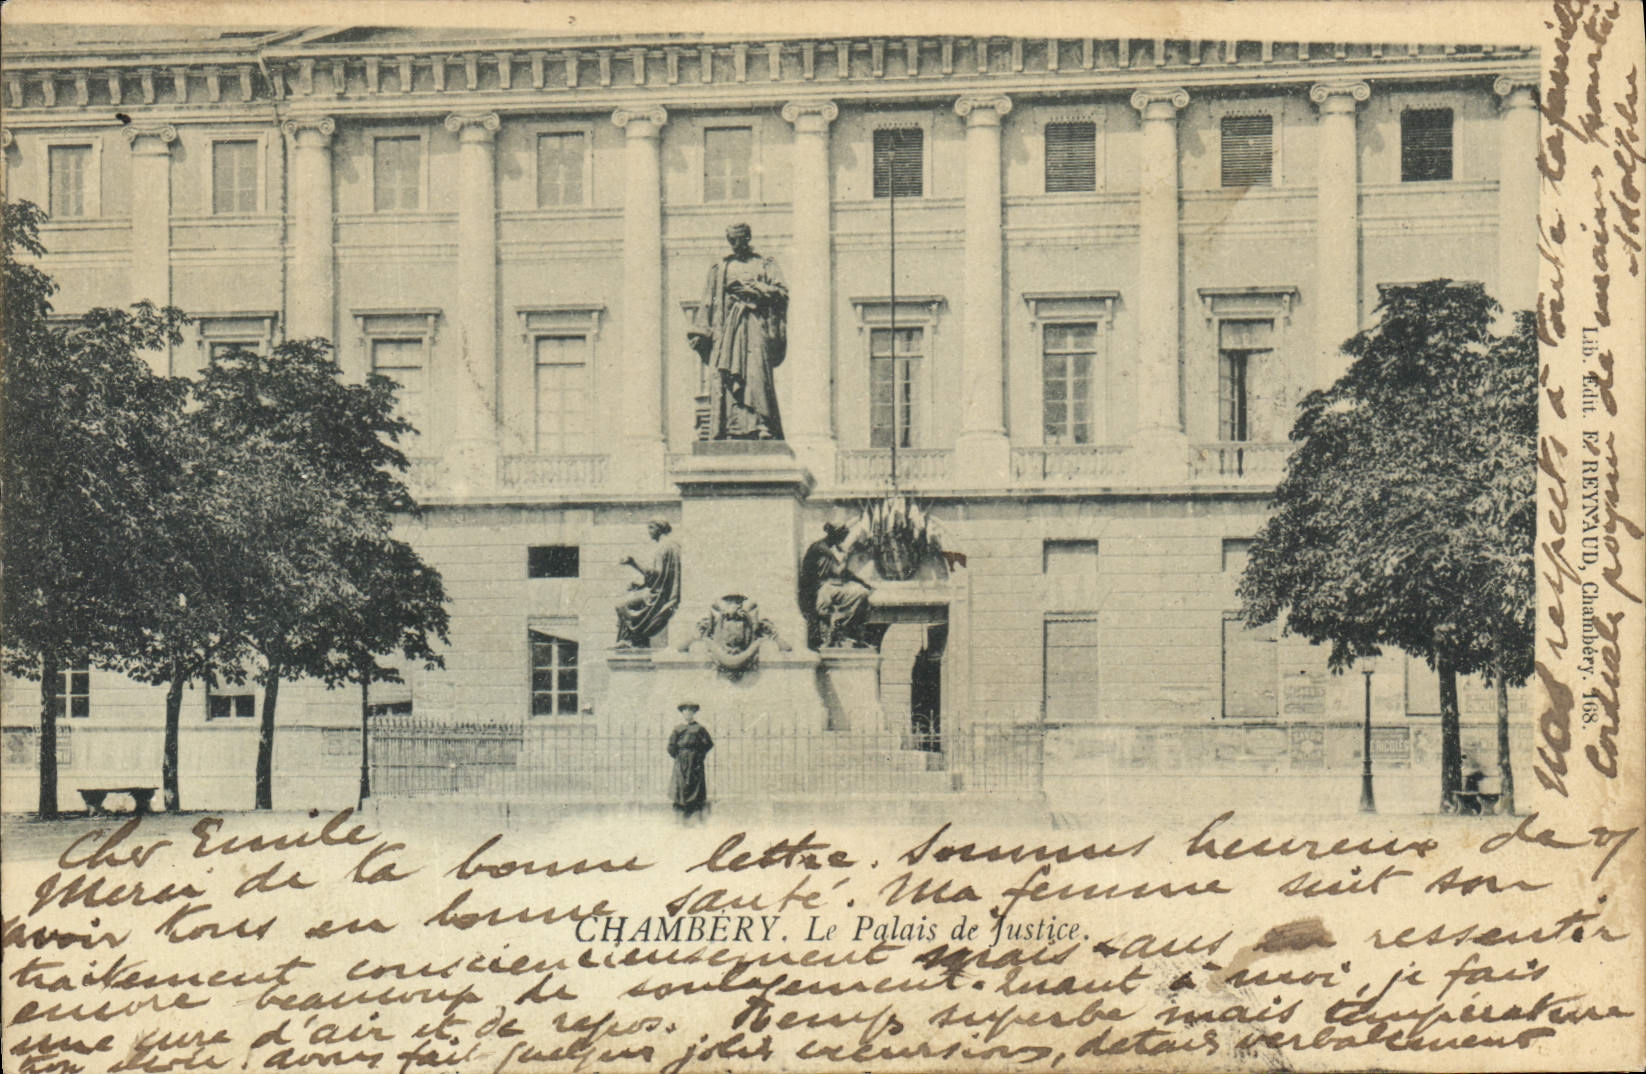 Cher Emile
Merci de ta bonne lettre. Sommes heureux de v
avoir tous en bonne santé. Ma femme suit son
CHAMBÉRY. Le Palais de Justice.
traitement consciencieusement mais sans ressentir
encore beaucoup de soulagement. Quant à moi, je fais
une cure d'air et de repos. Temps superbe mais température
avons fait quelques jolies excursions, details verbalement
Nos respects à toute ta famille
Lib. Edit. F. REYNAUD, Chambéry. 168.
Cordiale poignée de mains pour toi
Adolphe